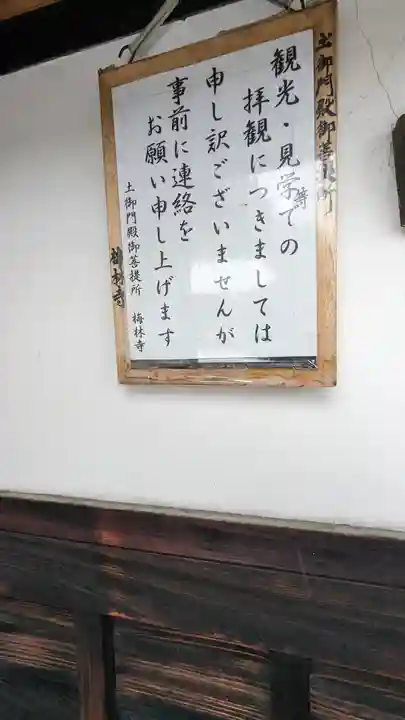 土御門殿御菩提所
観光・見学での
等
拝観につきましては
申し訳ございませんが
事前に連絡を
お願い申し上げます
土御門殿御菩提所 梅林寺
梅林寺